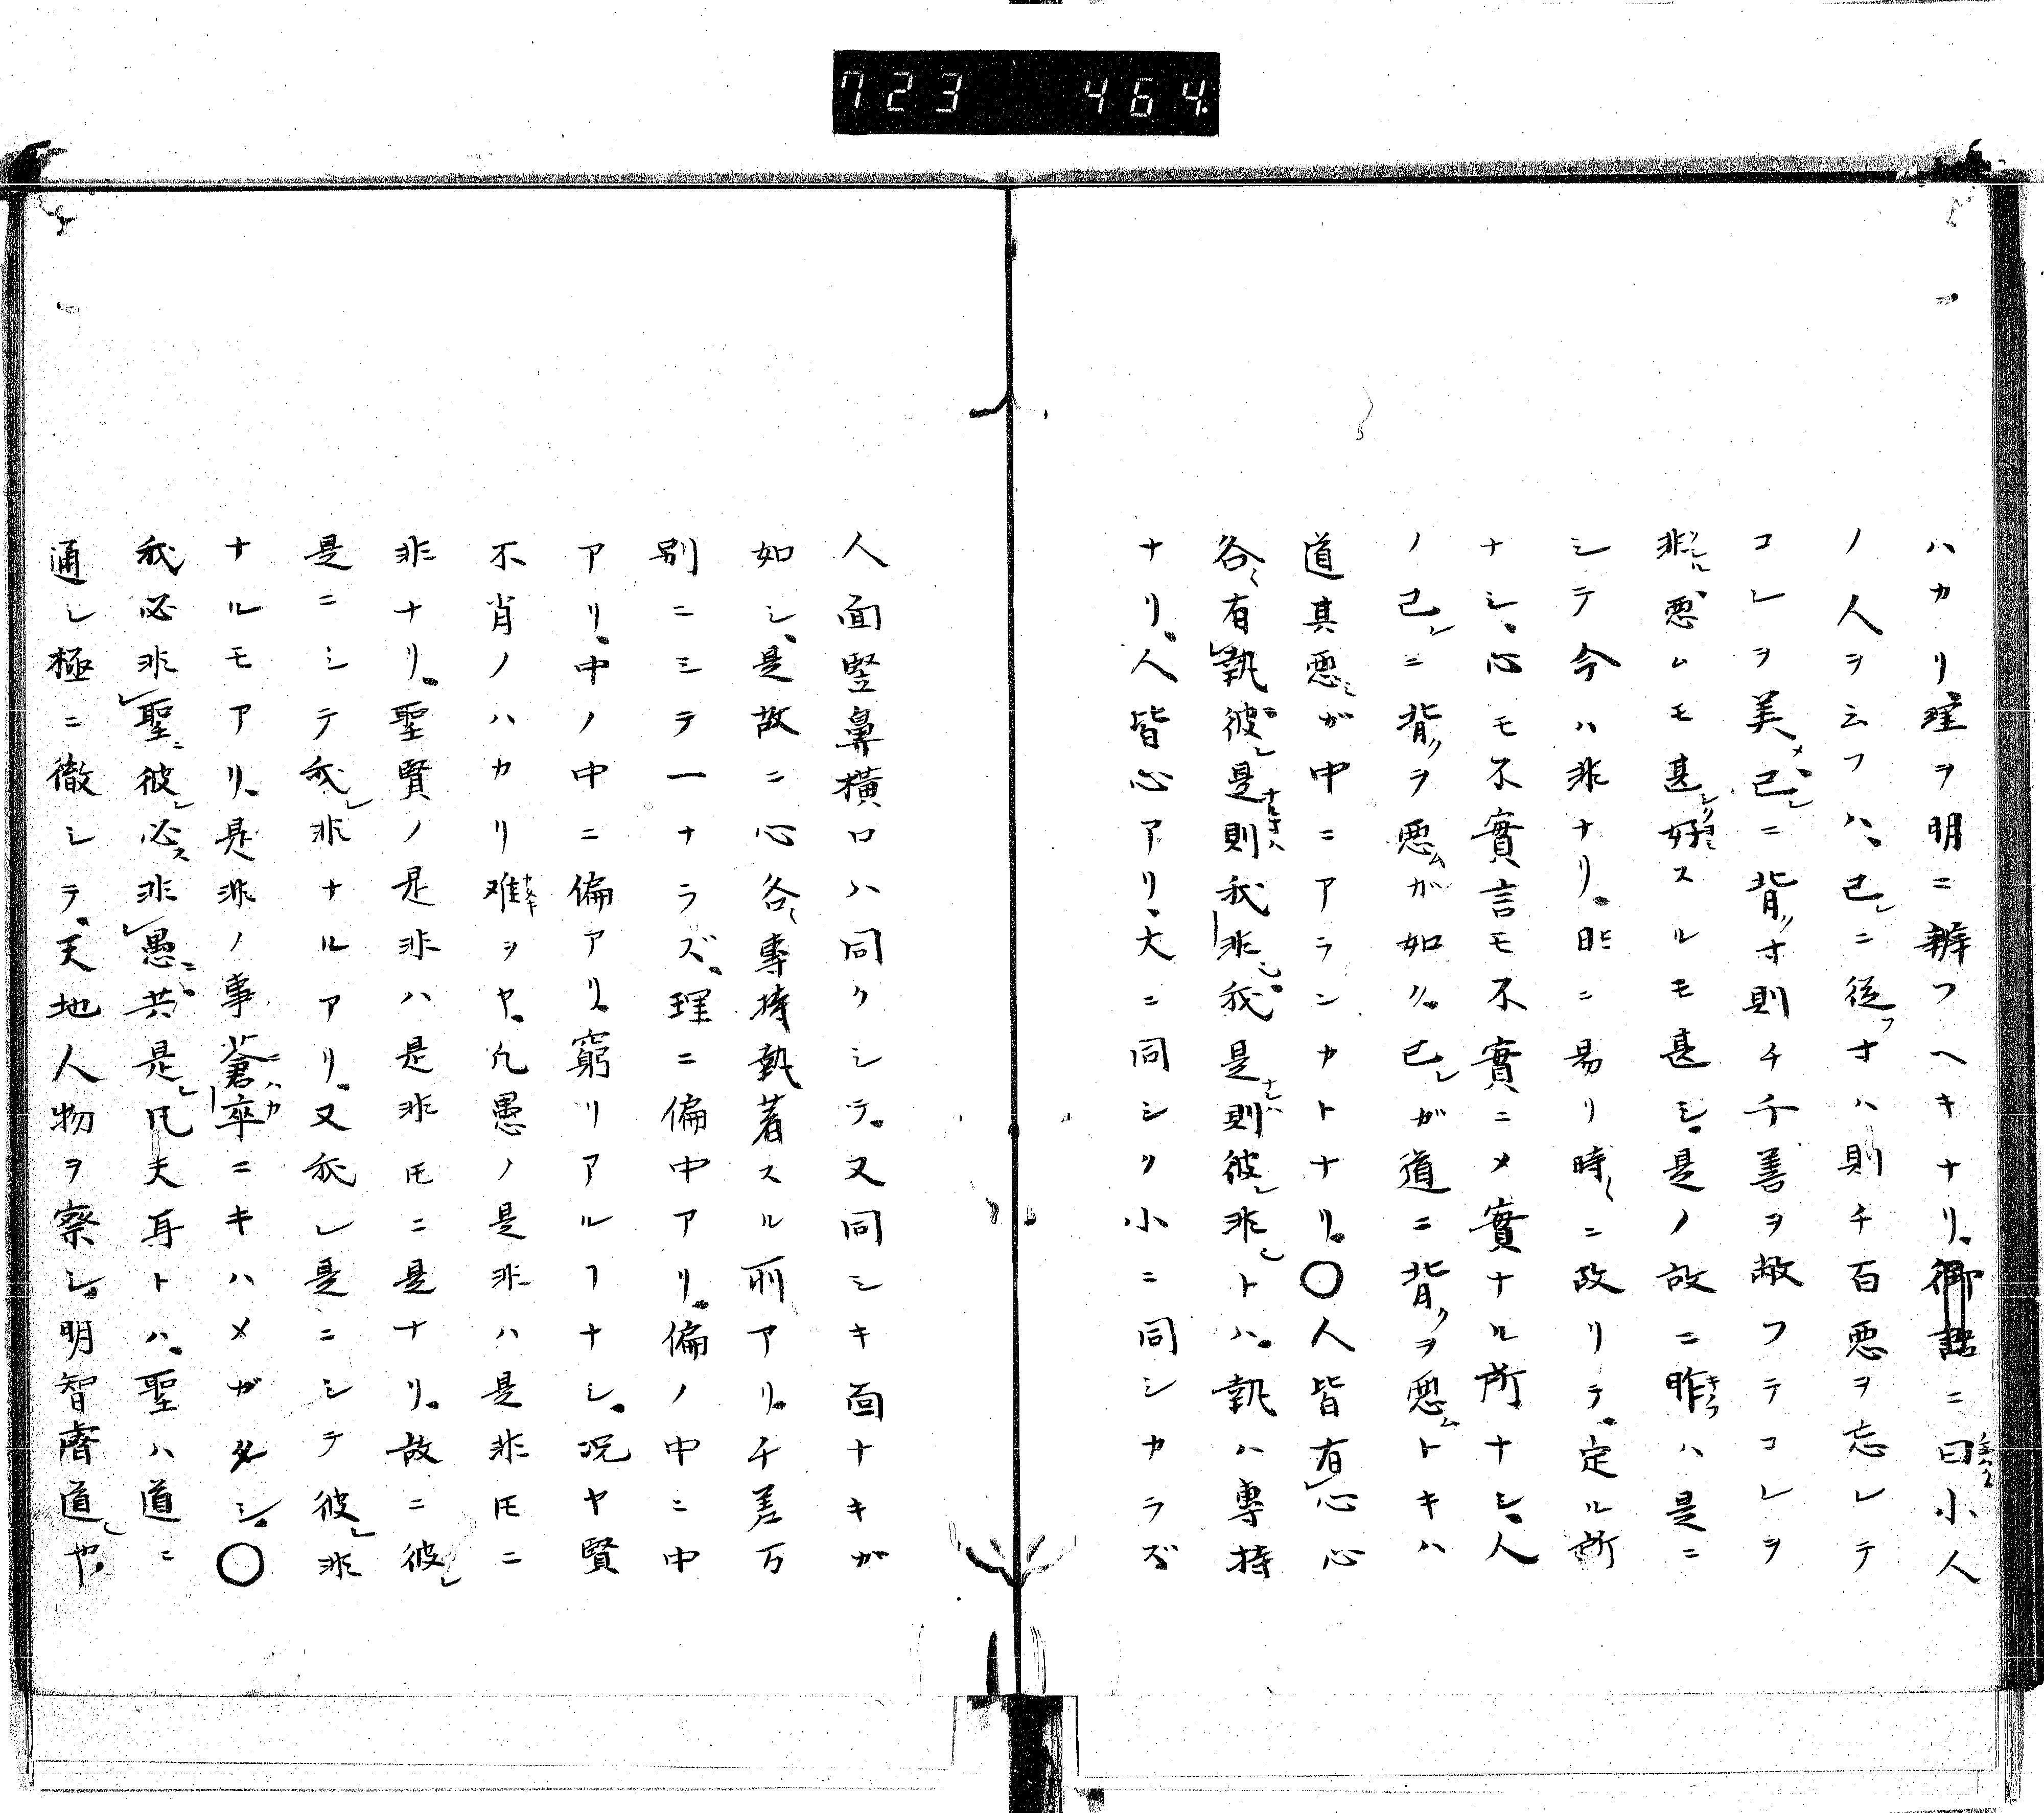 723 464
ハカリ理ヲ明ニ辨フヘキナリ。御語ニ曰小人
ノ人ヲ云フハ。己レニ従フ寸ハ則チ百悪ヲ忘レテ
コレヲ美メ。己レニ背ク寸則チ千善ヲ敝フテコレヲ
非ル。悪ムモ甚シク好ミスルモ甚シ。是ノ故ニ昨フハ是ニ
シテ今ハ非ナリ。昨ニ易リ時〻ニ改リテ。定ル所
ナシ。心モ不實言モ不實ニメ實ナル所ナシ。人
ノ己レニ背クヲ悪ムガ如ク。己レガ道ニ背クヲ悪ムトキハ
道其悪ミガ中ニアランカトナリ。〇人皆有レ心心
各〻有レ執彼レ是則我非シ。我是則彼レ非シトハ。執ハ專持
ナリ。人皆心アリ。大ニ同シク小ニ同シカラズ
人面竪鼻横口ハ同クシテ。又同シキ面ナキガ
如シ。是故ニ心各〻專持執着スル所アリ。千差万
別ニシテ一ナラズ。理ニ偏中アリ。偏ノ中ニ中
アリ。中ノ中ニ偏アリ。窮リアルヿナシ。况ヤ賢
不肖ノハカリ难キヲヤ。凡愚ノ是非ハ是非𪜈ニ
非ナリ。聖賢ノ是非ハ是非𪜈ニ是ナリ。故ニ彼レ
是ニシテ我レ非ナルアリ。又我レ是ニシテ彼レ非
ナルモアリ。是非ノ事蒼卒ニキハメガタシ。〇
我必非レ聖ニ。彼レ必ス非レ愚ニ。共是レ凡夫耳トハ。聖ハ道ニ
通シ極ニ徹シテ。天地人物ヲ察シ。明智睿道ヤ。